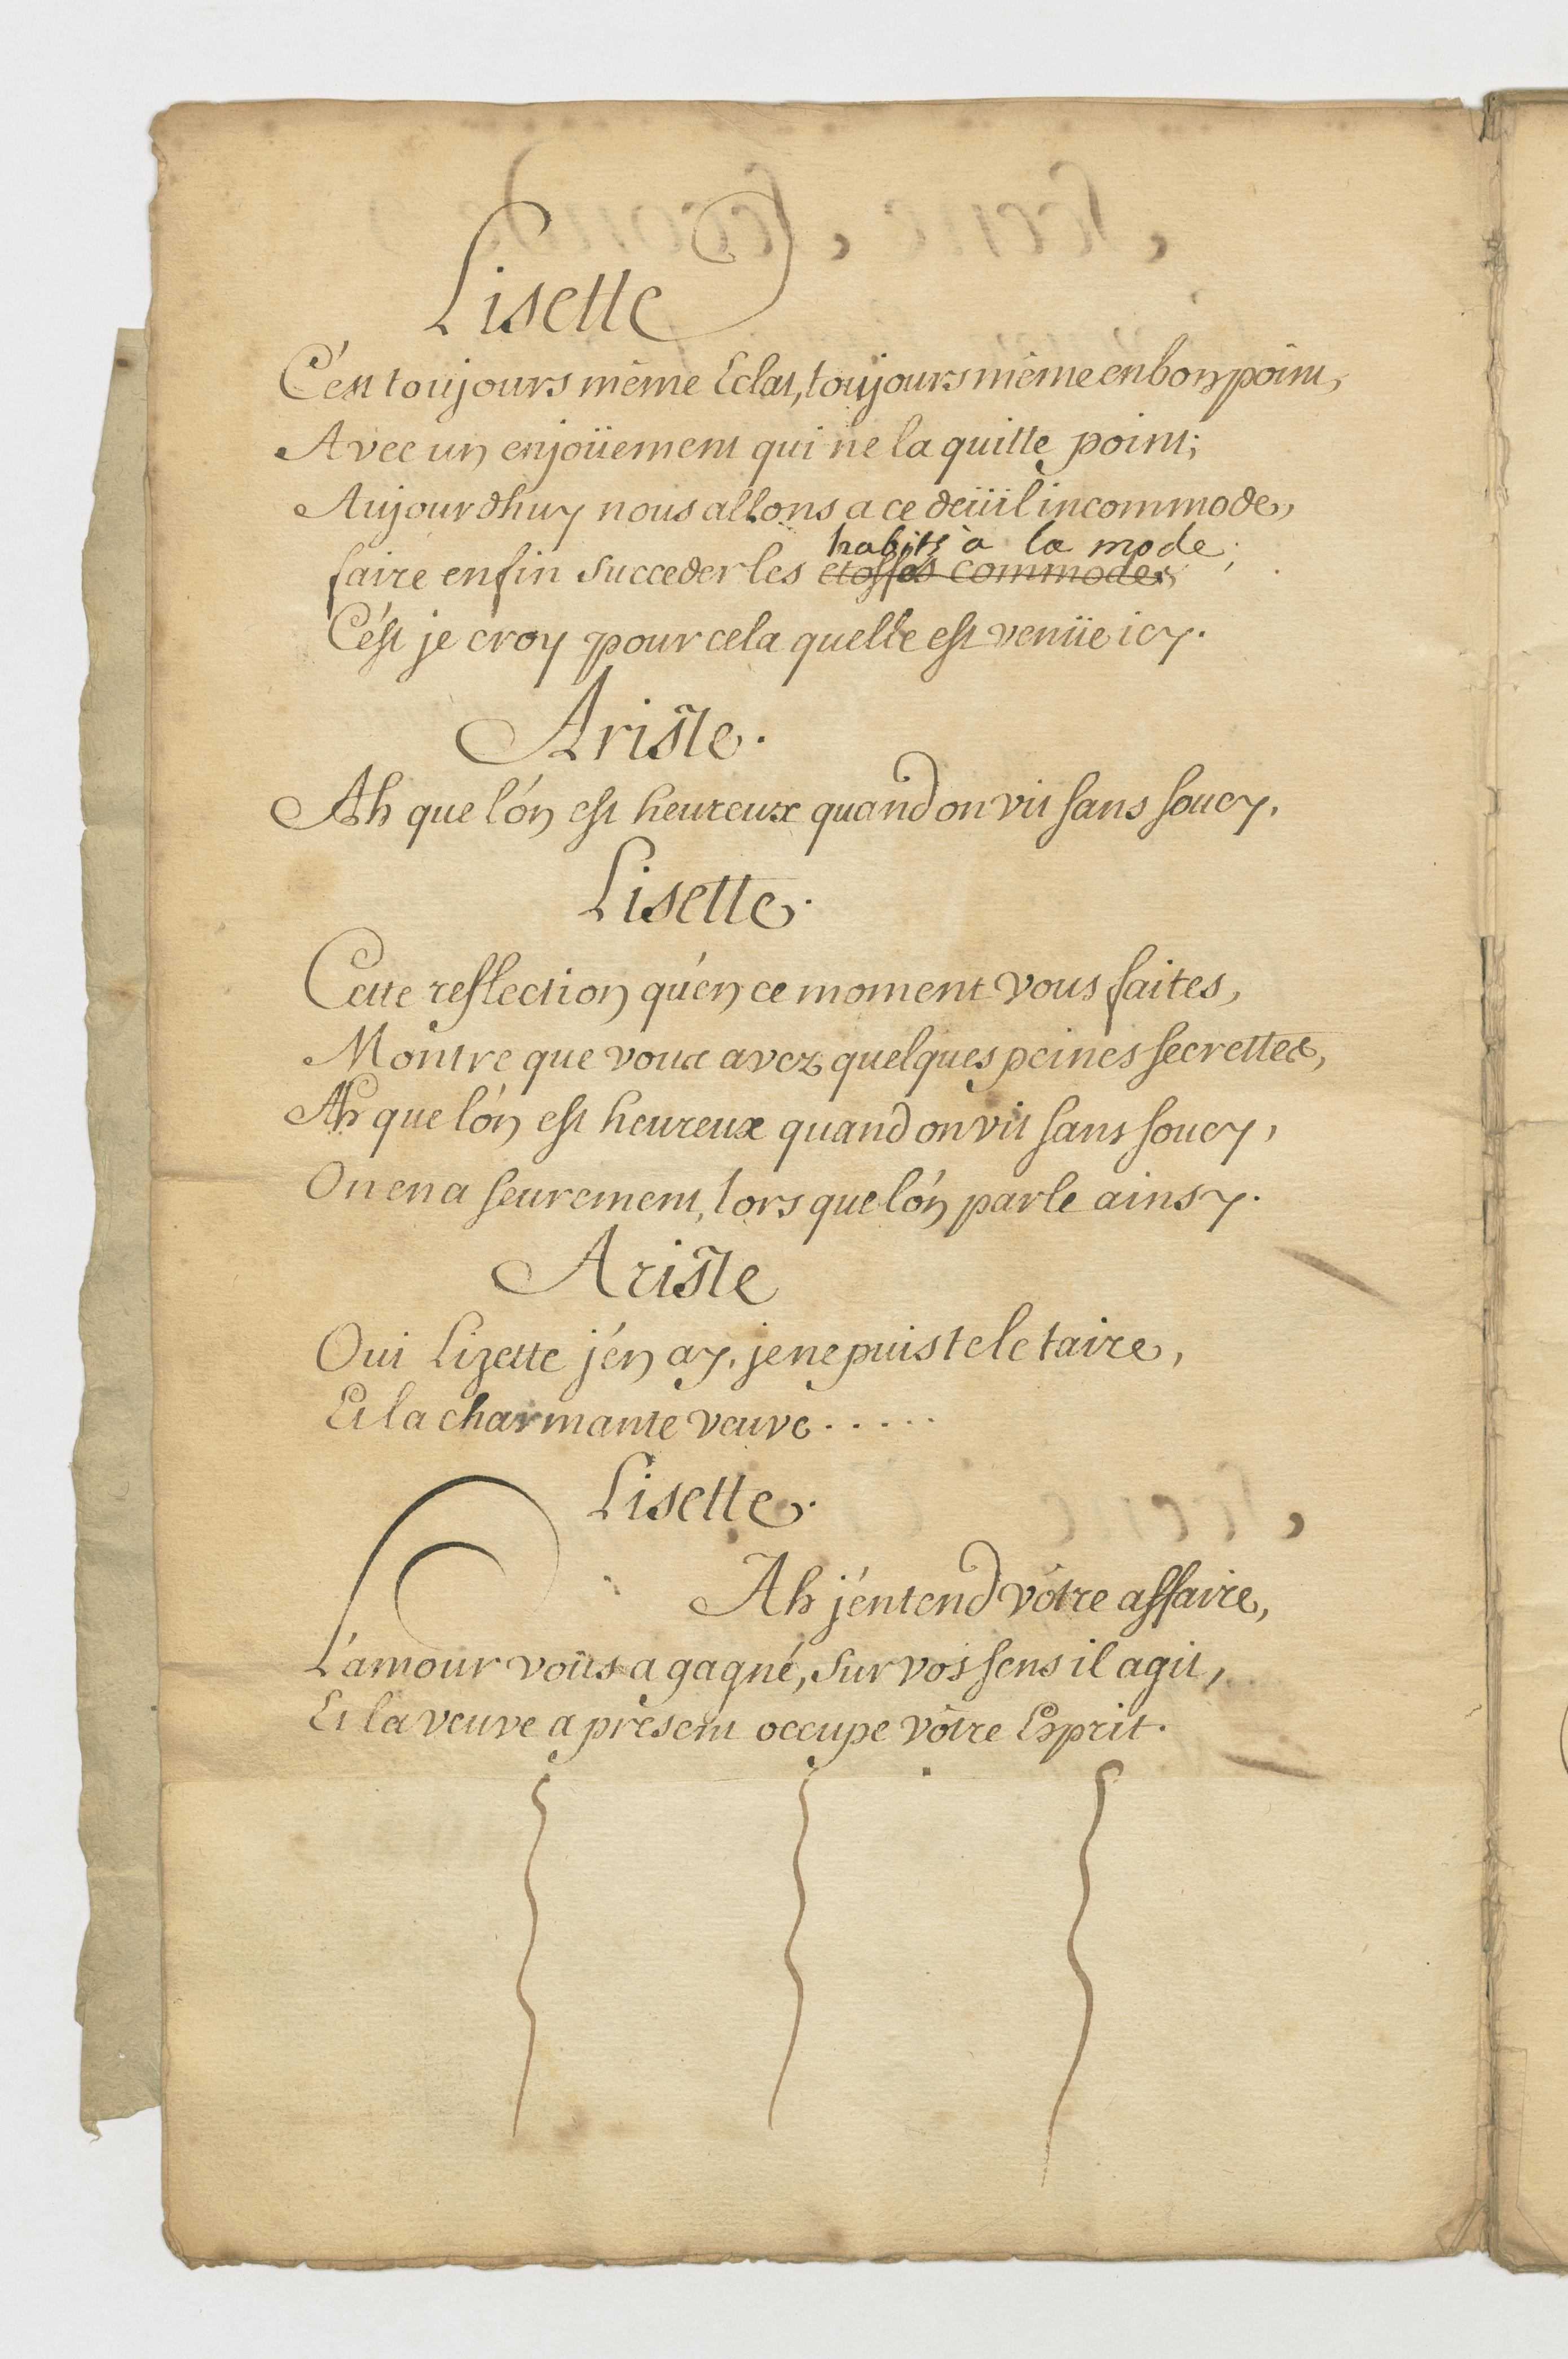 Lisette
C'est toujours même Eclat, toujours même enbonpoint,
Avec un enjoüement qui ne la quitte point;
Aujourdhuy nous allons a ce deüil incommode,
habits à la mode;
faire enfin succeder les etoffes commodes
C'est je croy pour cela quelle est venüe icy.
Ariste.
Ah que l'on est heureux quand on vit sans soucy,
Lisette.
Cette reflection qu'en ce moment vous faites,
Montre que vous avez quelques peines secrettes,
Ah que l'on est heureux quand on vit sans soucy,
On en a seurement, lors que l'on parle ainsy.
Ariste
Oui Lizette j'en ay, je ne puis te le taire,
Et la charmante veuve.....
Lisette.
Ah j'entend vôtre affaire,
L'amour vous a gagné, sur vos sens il agit,
Et la veuve a present occupe vôtre Esprit.